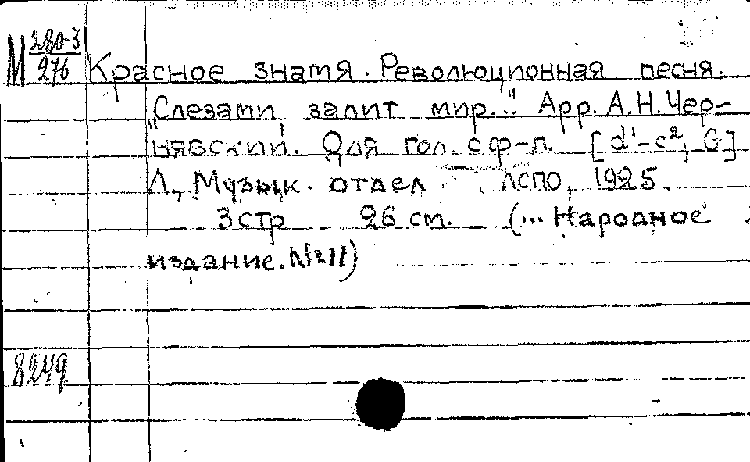 М 280-3
276
Красное знамя. Революционная песня.
"Слезами залит мир." Арр. А.Н.Чер-
нявский. Для гол. с ф-п. [d¹-c², G]
Л., Музык. отдел ЛСПО, 1925.
3 стр 26 см. (... Народное
издание. №211)
8249